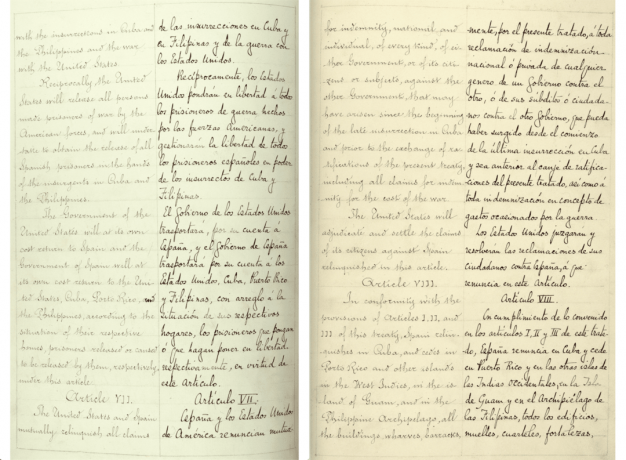 with the insurrections in Cuba and
the Philippines and the war
with the United States.
Reciprocally, the United
States will release all persons
made prisoners of war by the
American forces, and will under-
take to obtain the release of all
Spanish prisoners in the hands
of the insurgents in Cuba and
the Philippines.
The Government of the
United States will at its own
cost return to Spain and the
Government of Spain will at
its own cost return to the Uni-
ted States, Cuba, Porto Rico, and
the Philippines, according to the
situation of their respective
homes, prisoners released or caused
to be released by them, respectively,
under this article.
Article VII.
The United States and Spain
mutually relinquish all claims
de las insurrecciones en Cuba y
en Filipinas y de la guerra con
los Estados Unidos.
Recíprocamente, los Estados
Unidos pondrán en libertad á todos
los prisioneros de guerra hechos
por las fuerzas Americanas, y
gestionarán la libertad de todos
los prisioneros españoles en poder
de los insurrectos de Cuba y
Filipinas.
El Gobierno de los Estados Unidos
trasportará, por su cuenta á
España, y el Gobierno de España
trasportará por su cuenta á los
Estados Unidos, Cuba, Puerto Rico
y Filipinas, con arreglo á la
situación de sus respectivos
hogares, los prisioneros que pongan
ó que hagan poner en libertad
respectivamente, en virtud de
este Artículo.
Artículo VII.
España y los Estados Unidos
de America renuncian mutua-
for indemnity, national and
individual, of every kind, of ei-
ther Government, or of its citi-
zens or subjects, against the
other Government, that may
have arisen since the beginning
of the late insurrection in Cuba
and prior to the exchange of ra-
tifications of the present treaty,
including all claims for indem-
nity for the cost of the war.
The United States will
adjudicate and settle the claims
of its citizens against Spain
relinquished in this article.
Article VIII.
In conformity with the
provisions of Articles I, II, and
III of this treaty, Spain relin-
quishes in Cuba, and cedes in
Porto Rico and other islands
in the West Indies, in the is-
land of Guam, and in the
Philippine Archipelago, all
the buildings, wharves, barracks,
mente, por el presente tratado, á toda
reclamación de indemnización
nacional ó privada de cualquier
género de un Gobierno contra el
otro, ó de sus súbditos ó ciudada-
nos contra el otro Gobierno, que pueda
haber surgido desde el comienzo
de la última insurrección en Cuba
y sea anterior al canje de ratifica-
ciones del presente tratado, así como á
toda indemnización en concepto de
gastos ocasionados por la guerra.
Los Estados Unidos juzgarán y
resolverán las reclamaciones de sus
ciudadanos contra España, á que
renuncia en este Artículo.
Artículo VIII.
En cumplimiento de lo convenido
en los artículos I, II y III de este trata-
do, España renuncia en Cuba y cede
en Puerto Rico y en las otras islas de
las Indias Occidentales, en la Isla
de Guam y en el Archipiélago de
las Filipinas, todos los edificios,
muelles, cuarteles, fortalezas,